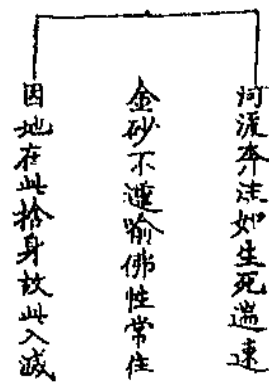 河流奔注如生死遄速
金砂不遷喻佛性常住
因地在此捨身故此入滅